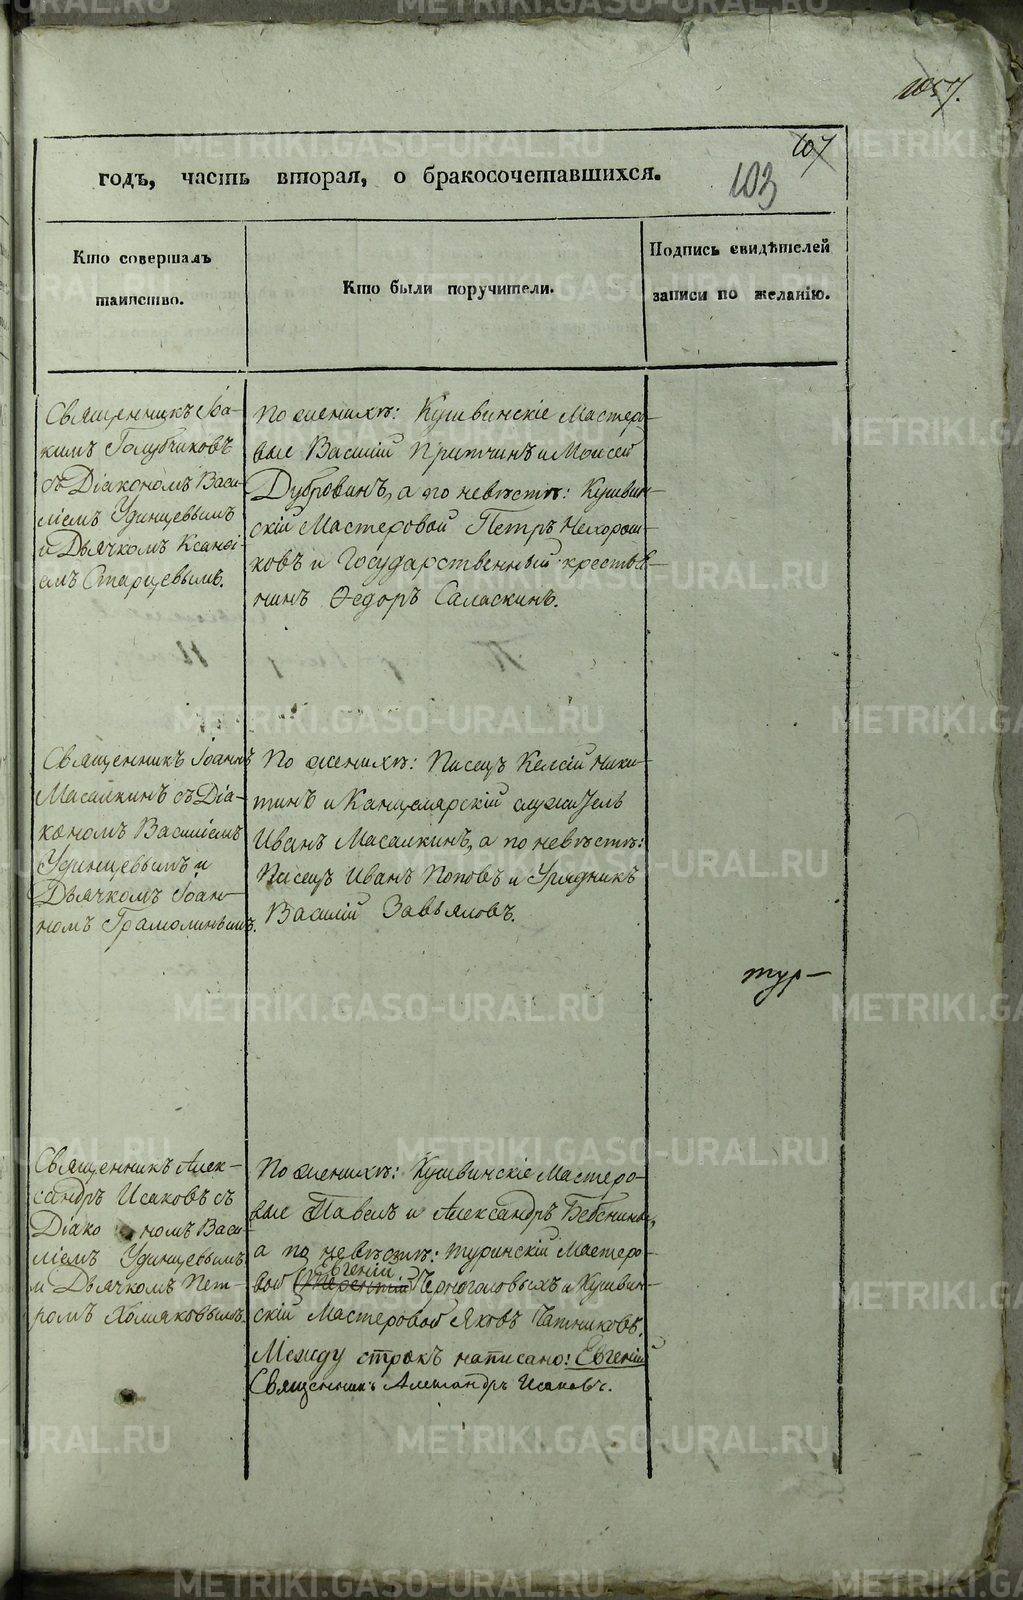 1057.
107
103
годъ, часть вторая, о бракосочетавшихся.
Кто совершалъ
таинство.
Кто были поручители.
Подпись свидѣтелей
записи по желанію.
Священникъ Іоа-
кимъ Голубчиковъ
съ Діакономъ Васи-
ліемъ Удинцевымъ
и Дьячкомъ Ксанфі-
емъ Старцевымъ.
По женихѣ: Кушвинскіе Мастеро-
вые Василій Притчинъ и Моисей
Дубровинъ, а по невѣстѣ: Кушвин-
скій Мастеровой Петръ Нехорош-
ковъ и Государственный крестья-
нинъ Ѳедоръ Саласкинъ.
Священникъ Іоаннъ
Масалкинъ съ Діа-
кономъ Василіемъ
Удинцевымъ и
Дьячкомъ Іоан-
номъ Грамолинымъ.
По женихѣ: Писецъ Келсій Ники-
тинъ и Канцелярскій служитель
Иванъ Масалкинъ, а по невѣстѣ:
Писецъ Иванъ Поповъ и Урядникъ
Василій Завьяловъ.
тур-
Священникъ Алек-
сандръ Исаковъ съ
Діакономъ Васи-
ліемъ Удинцевымъ
и Дьячкомъ Пет-
ромъ Хомяковымъ.
По женихѣ: Кушвинскіе Мастеро-
вые Павелъ и Александръ Бебенины,
а по невѣстѣ: туринскій Мастеро-
Евгеній
вой Черноголовыхъ и Кушвин-
скій Мастеровой Яковъ Чатниковъ.
Между строкъ написано: Евгеній
Священникъ Александръ Исаковъ.
METRIKI.GASO-URAL.RU